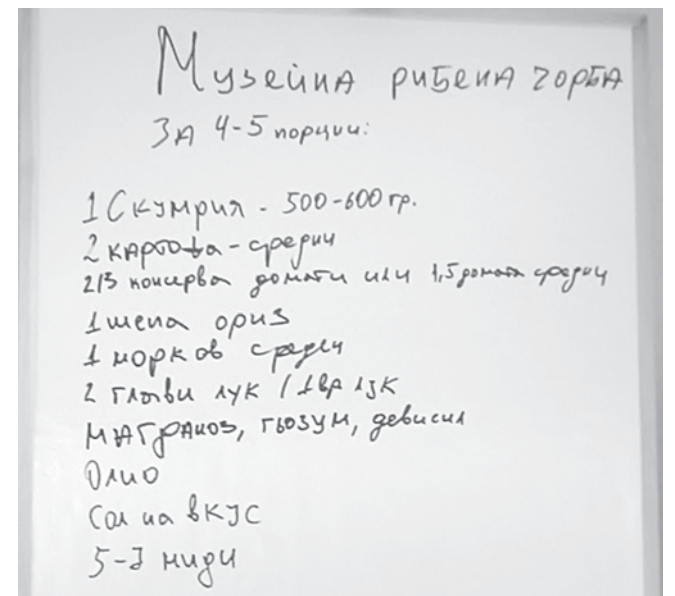 Музейна рибена чорба
За 4-5 порции:
1 Скумрия - 500-600 гр.
2 картофа - средни
2/3 консерва домати или 1,5 домата средни
1 шепа ориз
1 морков среден
2 глави лук / 1 вр лук
магданоз, гьозум, девисил
Олио
Сол на вкус
5-7 миди